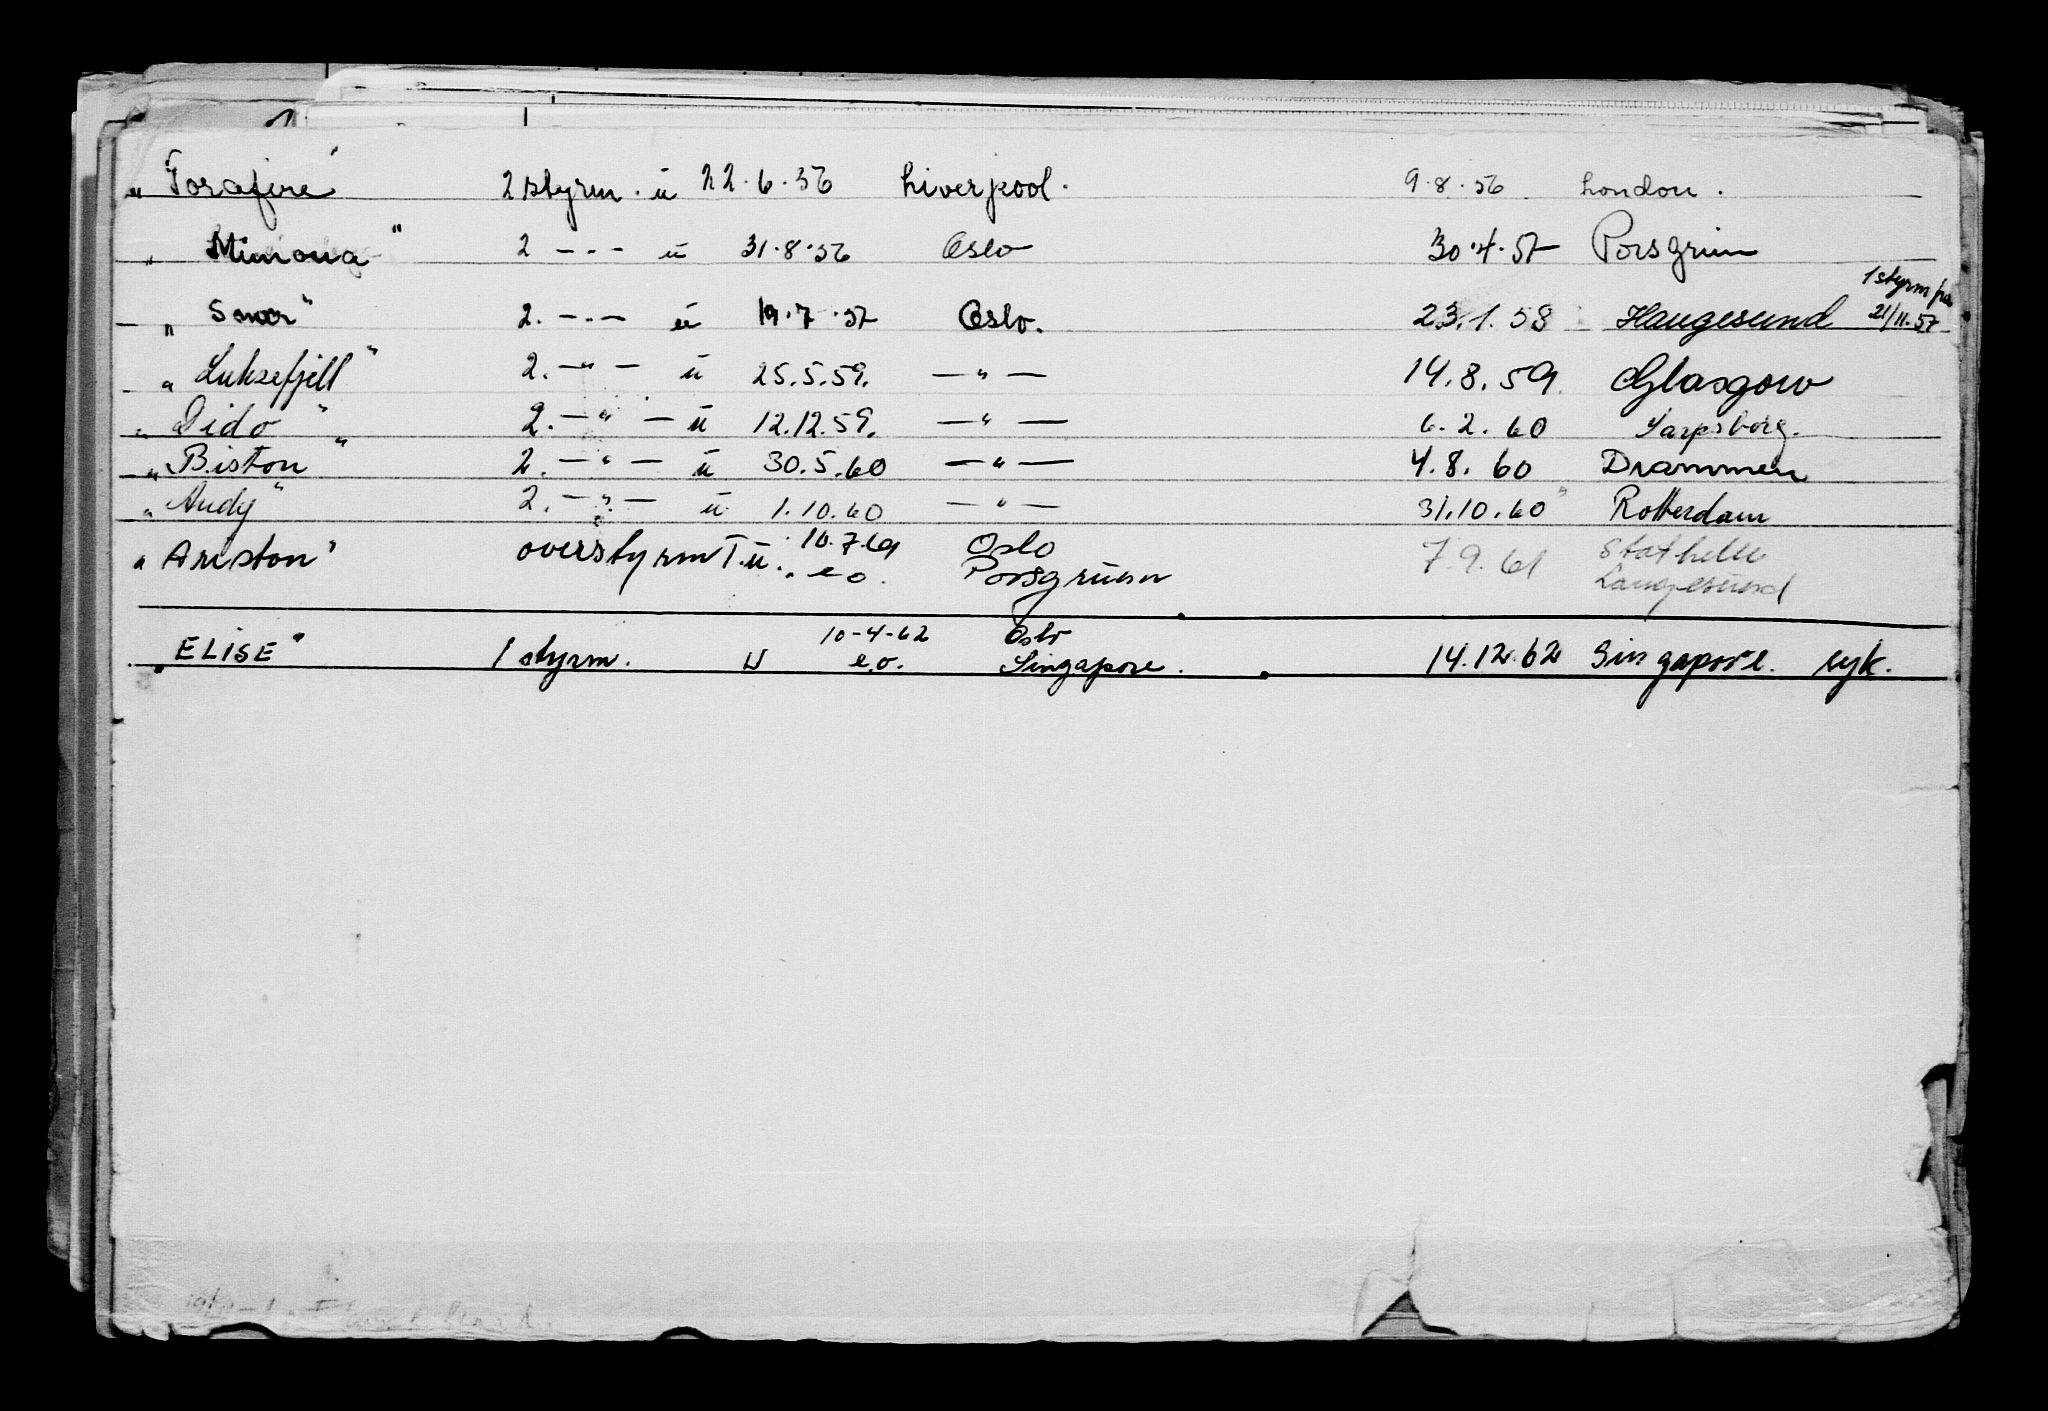 " Torafire" 2 styrm. ü 22.6.56 Liverpool. 9.8.56 London.
" Mimona" 2 -.- ü 31.8.56 Oslo 30.4.57 Porsgrunn
1 styrm fra
" Soner" 2. -.- ü 19.7.57 Oslo. 23.1.58 Haugesund 21/11.57
" Luksefjell" 2. -"- ü 25.5.59. -"- 14.8.59. Glasgow
" Dido" 2. -"- ü 12.12.59. -"- 6.2.60 Sarpsborg.
" Biston" 2. -"- ü 30.5.60 -"- 4.8.60 Drammen
" Andy" 2. -"- ü 1.10.60 -"- 31.10.60 Rotterdam
" Ariston" overstyrm T.ü. 10.7.61 Oslo 7.9.61 Stathelle
e.o. Porsgrunn Langesund
10-4-62 Oslo
"ELISE" 1 styrm. ü e.o. Singapore. 14.12.62 Singapore. syk.